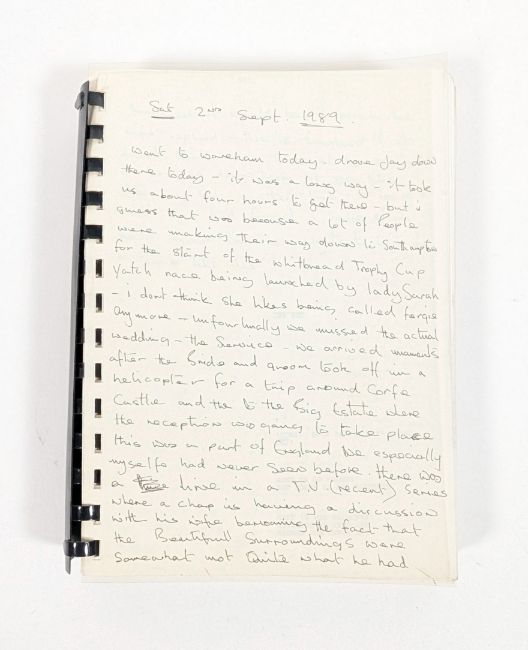 Sat 2ND Sept. 1989.
Went to wareham today. drove Jay down
there today - it was a long way - it took
us about four hours to get there - but i
guess that was because a lot of People
were making their way down to Southampton
for the start of the whitbread Trophy Cup
Yatch race being launched by lady Sarah
- i dont think she likes being called fergie
anymore - unfourtunally we missed the actual
wedding - the Service - we arrived moments
after the Bride and groom took off in a
helicopter for a trip around Corfe
Castle and the to the Big Estate where
the reception was going to take place
this was a part of England we especially
myselfe had never seen before. there was
a line in a T.V (recent) series
where a chap is having a discussion
with his wife bemoaning the fact that
the Beautifull Surroundings were
somewhat not Quite what he had